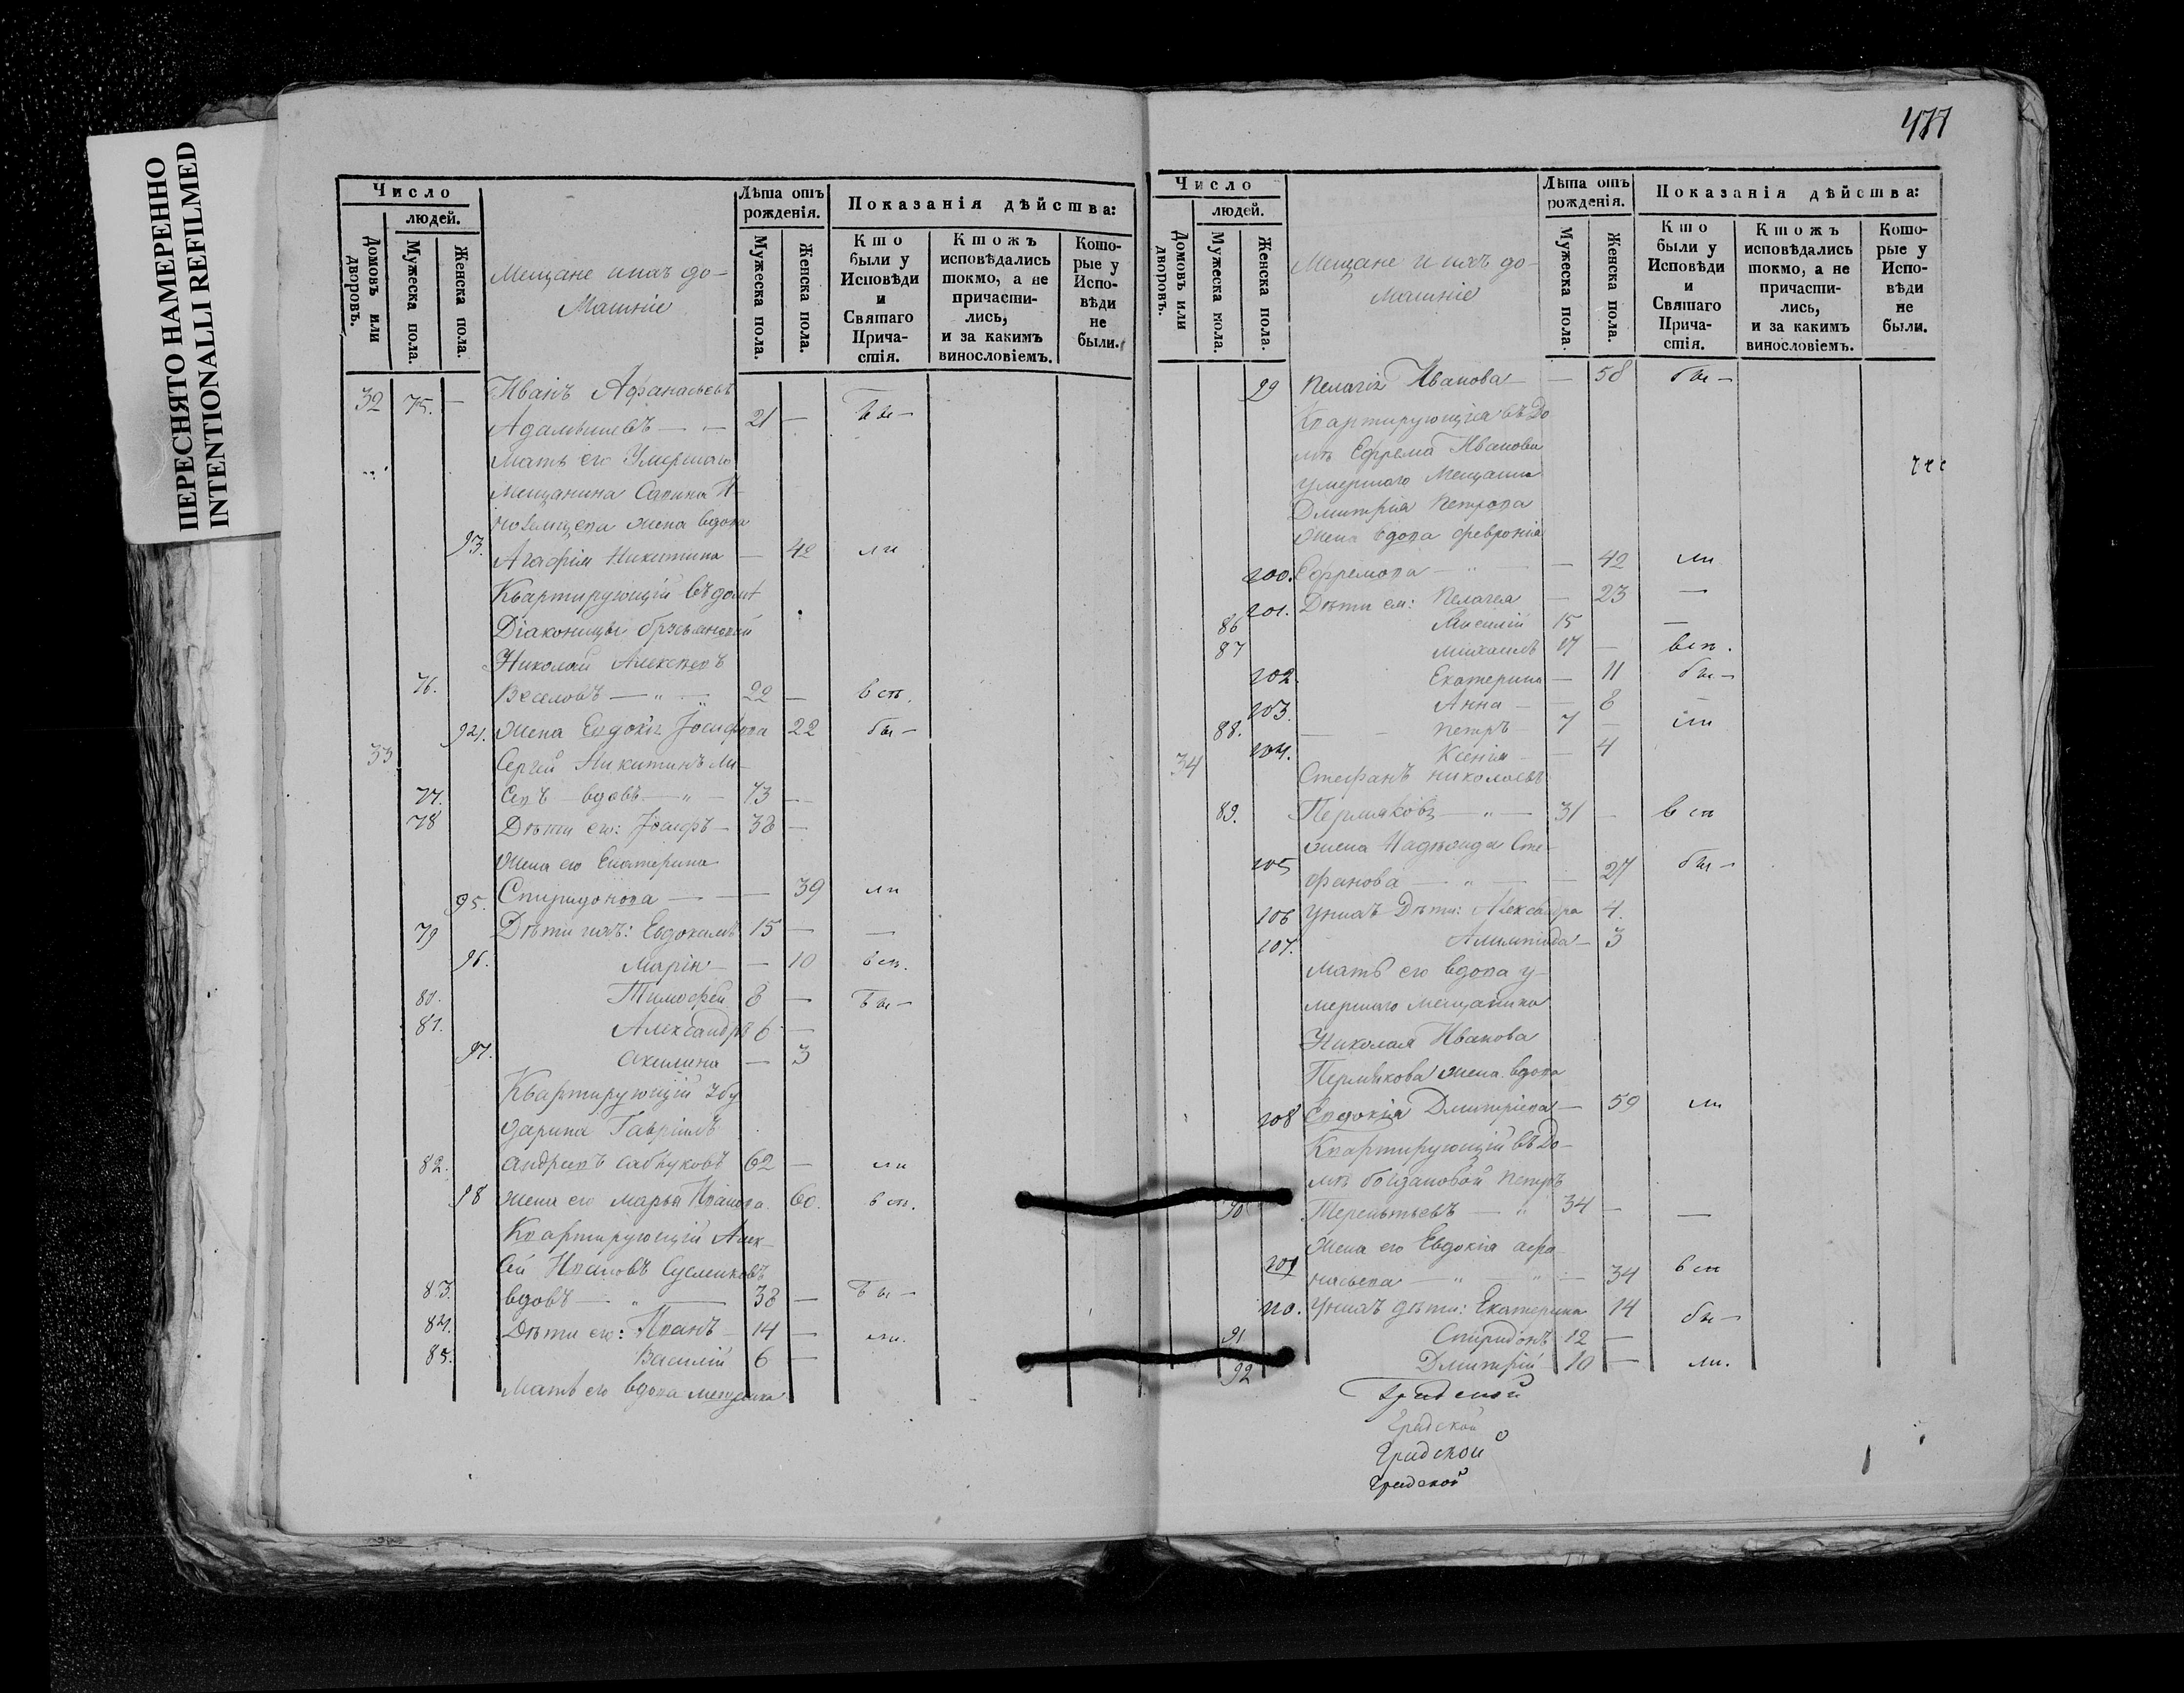 ПЕРЕСНЯТО НАМЕРЕННО
INTENTIONALLI REFILMED
Число
людей.
Домовъ или дворовъ.
Мужеска пола.
Женска пола.
Мещане и ихъ до-
машніе
Лѣта отъ рожденія.
Мужеска пола.
Женска пола.
Показанія дѣйства:
Кто были у Исповѣди и Святаго Прича-стія.
Ктожъ исповѣдались токмо, а не причасти-лись, и за какимъ винословіемъ.
Кото-рые у Испо-вѣди не были.
32 75. — Иванъ Афанасьевъ
21 — бы —
Мать его Умершаго
мещанина
жена вдова
93. Агафія Никитина — 42 ли
Квартирующій въ домѣ
Діаконицы
Николай Алексѣевъ
76. Веселовъ — " — 22 — в сп.
94. Жена Евдокія Іосифова 22 бы —
33 Сергей Никитинъ Ли-
77. сепъ вдовъ — " — 73 —
78 Дѣти его: Іосифъ — 38 —
Жена его Екатерина
95. Спиридонова — — 39 ли
79 Дѣти ихъ: Евдокимъ 15 — —
96. Марія — — 10 в сп.
80. Тимофей 8 — бы —
81. Александръ 6 —
97. Акилина — 3
Квартирующій
Гавріилъ
82. Андреевъ 62 — ли
98 Жена его Марья Иванова 60. в сп.
Квартирующій Алек-
сѣй Ивановъ
83. вдовъ — " — 38 — бы —
84. Дѣти его: Иванъ — 14 — ли.
85. Василій 6 —
Мать его вдова мещанка
477
Число
людей.
Домовъ или дворовъ.
Мужеска пола.
Женска пола.
Мещане и ихъ до-
машніе
Лѣта отъ рожденія.
Мужеска пола.
Женска пола.
Показанія дѣйства:
Кто были у Исповѣди и Святаго Прича-стія.
Ктожъ исповѣдались токмо, а не причасти-лись, и за какимъ винословіемъ.
Кото-рые у Испо-вѣди не были.
99 Пелагія Иванова — — 58 бы —
Квартирующія въ До
мѣ Ефрема Иванова
умершаго Мещанина
Дмитрія Петрова
жена вдова Февронія
100. Ефремова — " — — 42 ли
101. Дѣти ея: Пелагея — 23 —
86 15 —
87 Михаилъ 17 — в сп.
102. Екатерина — 11 бы —
103. Анна — — 8 —
88. Петръ — 7 — ли
104. Ксенія — — 4
34 Стефанъ Николаевъ
89. Пермяковъ — " — 31 — в сп
жена Надежда Сте-
105 фанова — " — — 27 бы —
106 У нихъ Дѣти: Александра 4.
107. Алимпіада — 3
Мать его вдова у-
мершаго мещанина
Николая Иванова
Пермякова жена вдова
108 Евдокія Дмитріева — 59 ли
Квартирующій въ До-
мѣ Богдановой Петръ
90 Терентьевъ — " 34 — —
Жена его Евдокія Афа-
109 насьева — " — " — 34 в сп
110. У нихъ дѣти: Екатерина 14 бы —
91 Спиридонъ 12 —
92 Дмитрій — 10 — ли.
Градской
Градской
Градской
Градской